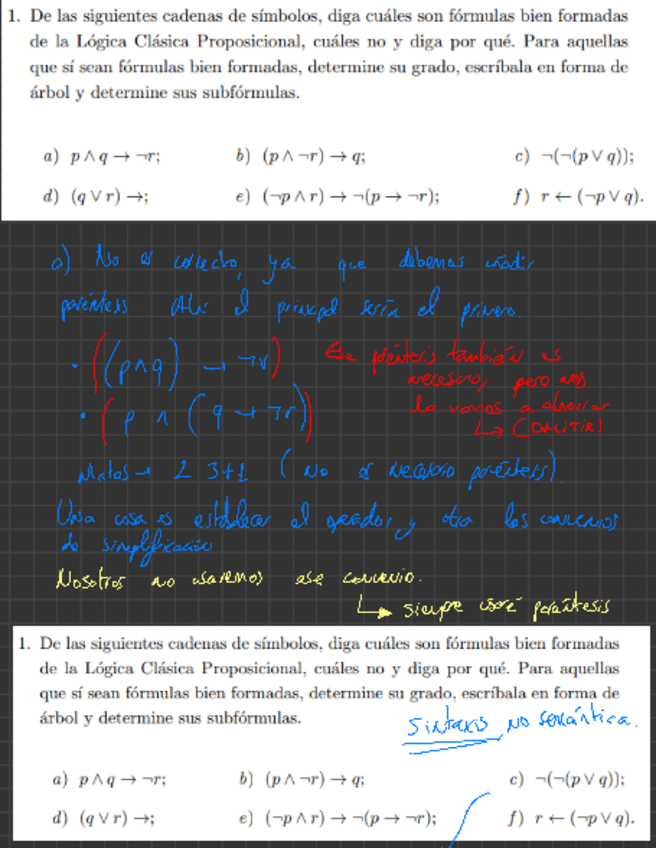 1. De las siguientes cadenas de símbolos, diga cuáles son fórmulas bien formadas
de la Lógica Clásica Proposicional, cuáles no y diga por qué. Para aquellas
que sí sean fórmulas bien formadas, determine su grado, escríbala en forma de
árbol y determine sus subfórmulas.
a) p ∧ q → ¬r;  b) (p ∧ ¬r) → q;  c) ¬(¬(p ∨ q));
d) (q ∨ r) →;  e) (¬p ∧ r) → ¬(p → ¬r);  f) r ← (¬p ∨ q).
a) No es correcto, ya que debemos añadir
paréntesis el principal sería el primero.
· ((p ∧ q) → ¬r) Ese paréntesis también es
necesario, pero nos
· (p ∧ (q → ¬r)) lo vamos a ahorrar
↳ (OMITIR)
Mates → 2 3+1 (No es necesario paréntesis).
Una cosa es establecer el y otra los convenios
de simplificación
Nosotros no usaremos ese convenio.
↳ siempre usaré paréntesis
1. De las siguientes cadenas de símbolos, diga cuáles son fórmulas bien formadas
de la Lógica Clásica Proposicional, cuáles no y diga por qué. Para aquellas
que sí sean fórmulas bien formadas, determine su grado, escríbala en forma de
árbol y determine sus subfórmulas.
Sintaxis, no semántica.
a) p ∧ q → ¬r;  b) (p ∧ ¬r) → q;  c) ¬(¬(p ∨ q));
d) (q ∨ r) →;  e) (¬p ∧ r) → ¬(p → ¬r);  f) r ← (¬p ∨ q).